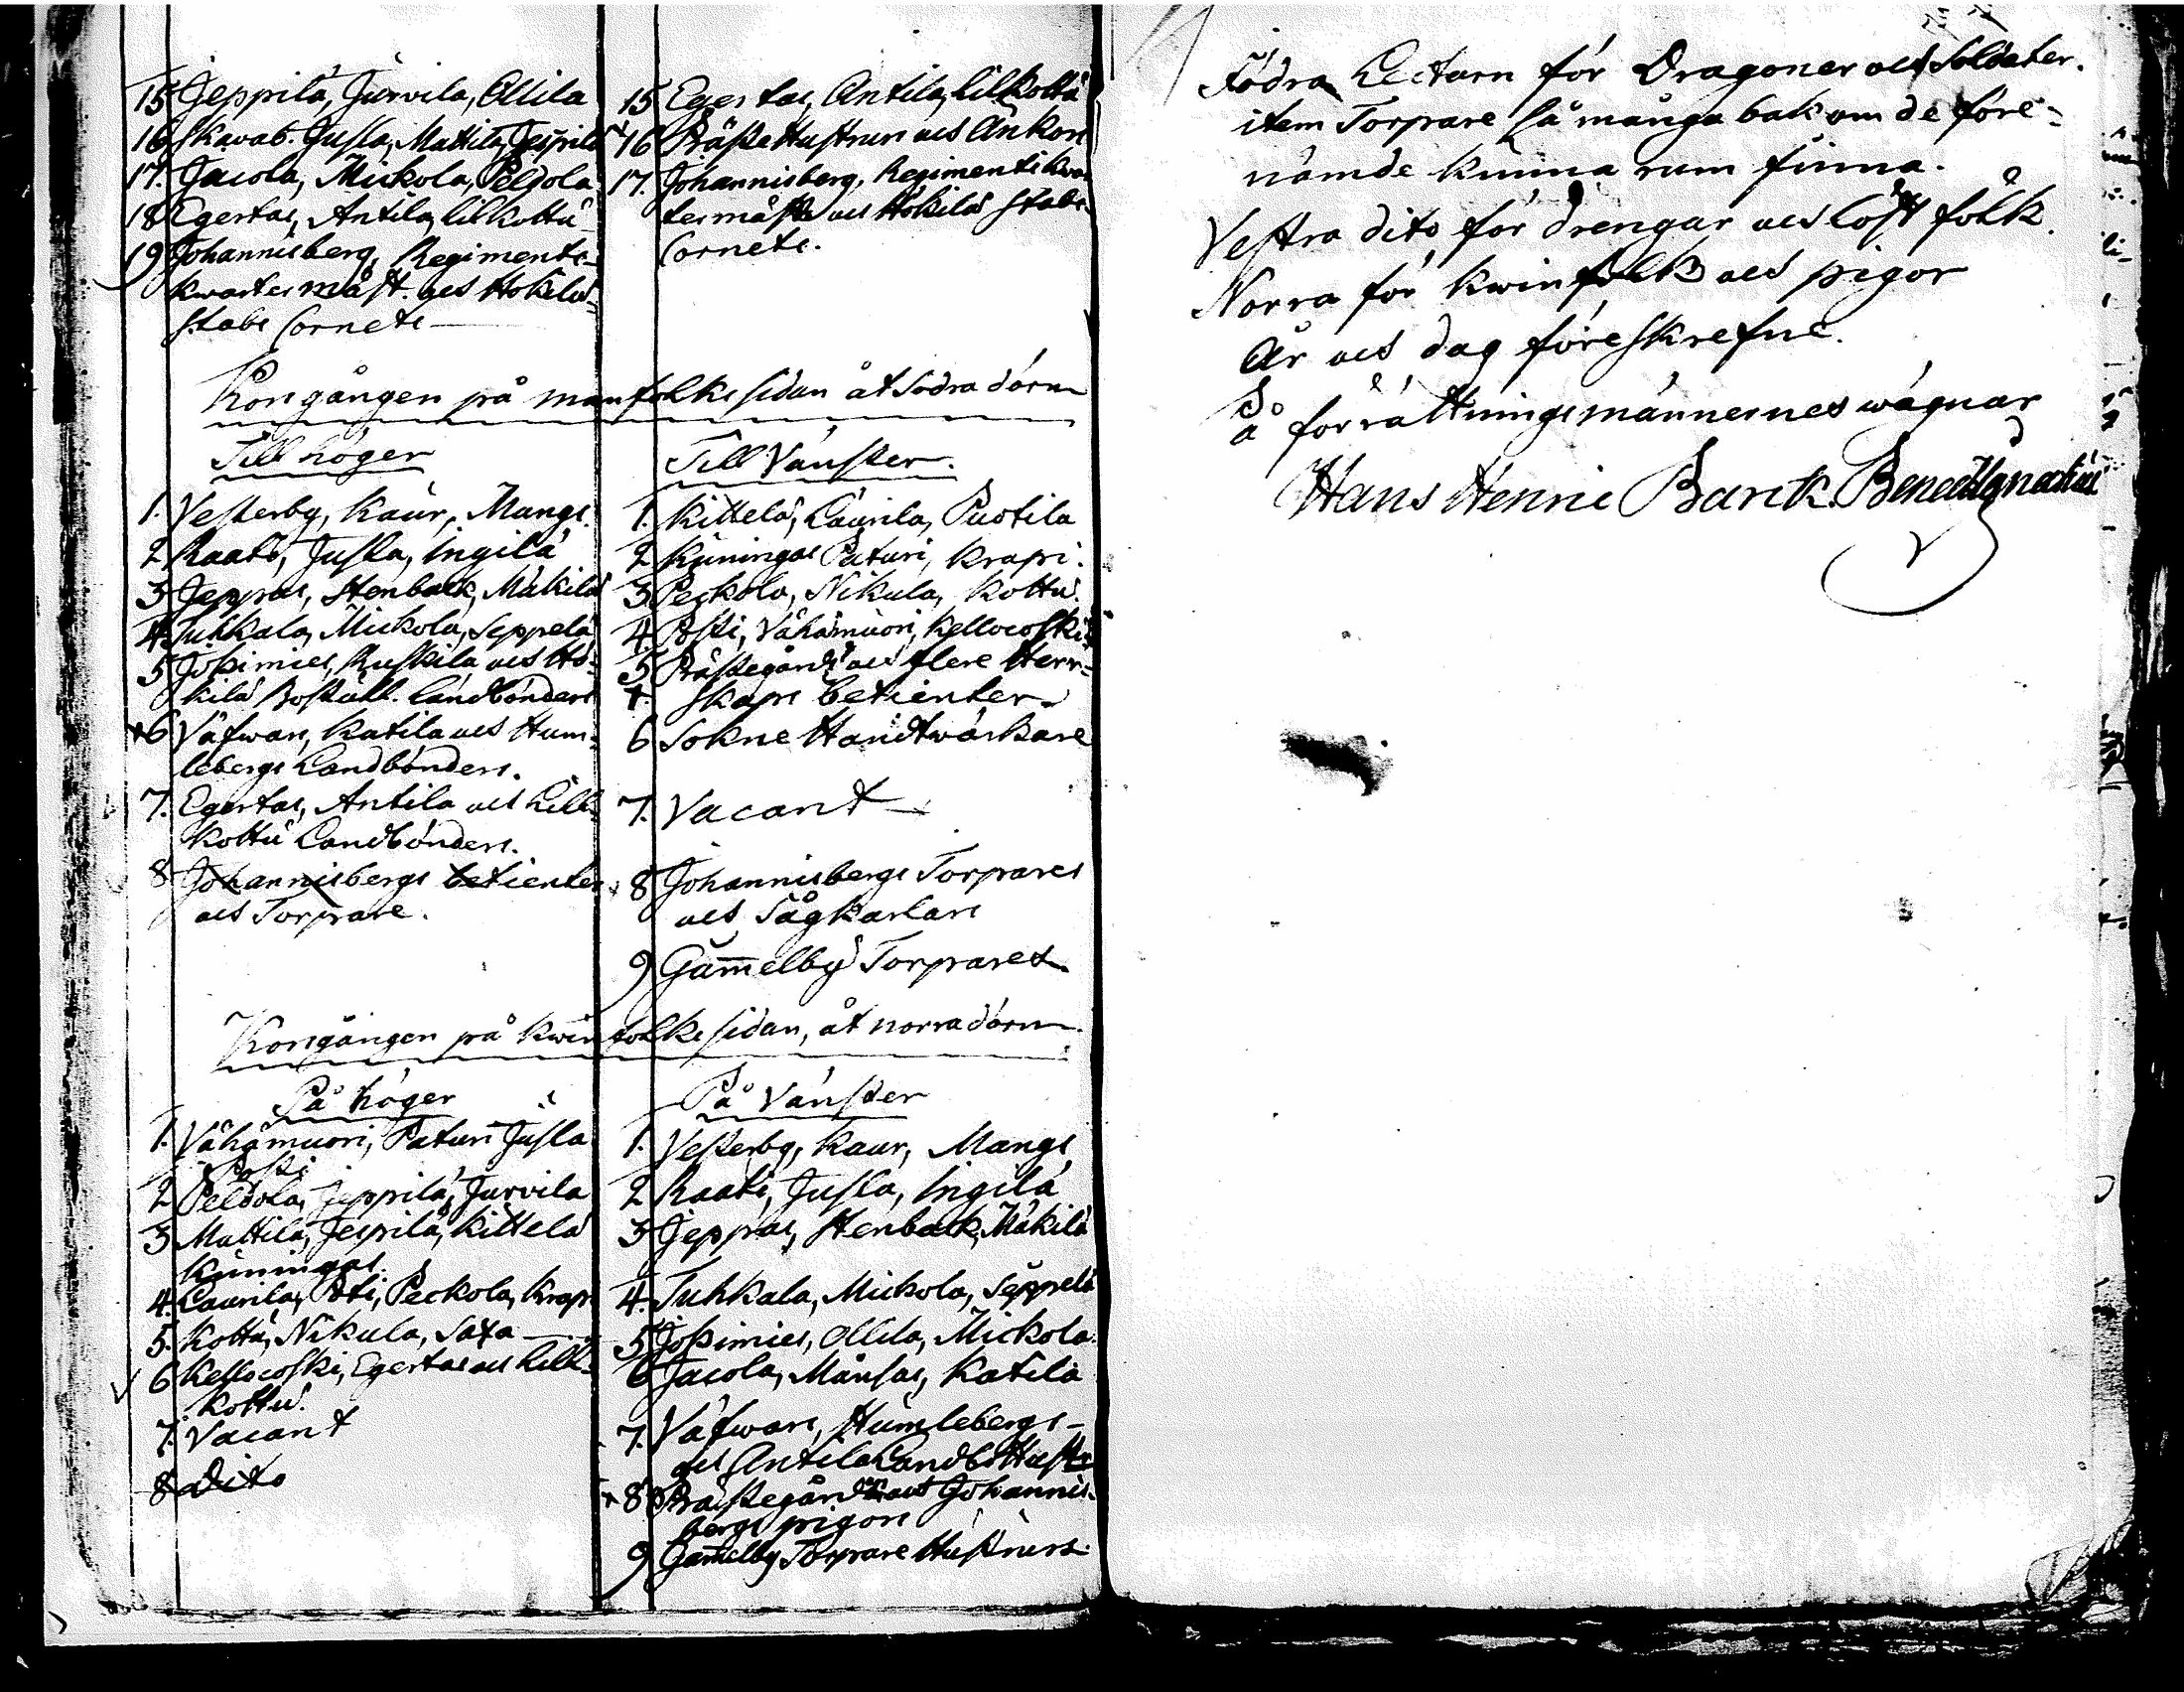 15 Jeppilä, Jurvila, Ollila
16 Skavab. Jusla, Mattila, Jespilä
17. Jacola, Mickola, Peldola
18 Egertas, Antila, Lilkottu
19 Johannisberg, Regiments-
kwartermäst. och Hökilä
stabs Cornets
15 Egertas, Antila, Lilkottu
16 Präste Hustrun och Enkon
17. Johannisberg, Regiments kwar
termäst och Hökilä stabs
Cornets.
Korsgången på manfolks sidan åt södra dörn
Till höger
1. Vesterby, Kaur, Mangs.
2 Raati, Jusla, Ingilä
3 Jeppas, Stenback, Mäkilä
4. Tuhkala, Mickola, Seppelä
5 Joßimies, Ruskila och Hö-
kilä Boställ. Landbönders
6 Väfwars, Katila och Hum-
lebergs Landbönders.
7. Egertas, Antila och Lill
kottu Landbönders.
8 Johannisbergs betienter
och Torpare.
Till Vänster.
1. Kittelä, Laurila, Puotila
2 Kuningas Paturi, Krapi.
3 Peckola, Nikula, Kottu.
4 Posti, Vähämuori, Kellocoski
5 Prästegårds och flere Herr-
skaps betienter
6 Sokne Handtwärkare
7. Vacant
8 Johannisbergs Torpares
och Sågkarlars
9 Gam̄elby Torpares
Korsgången på kwinfolks sidan, åt norra dörn
På höger
1. Vähämuori, Paturi Jusla
Posti
2 Peldola, Jeppilä, Jurvila
3 Mattila, Jespilä, Kittelä
Kuningas.
4. Laurila, Poti, Peckola, Krapi
5. Kottu, Nikula, Saxa
6 Kellocoski, Egertas och Lill-
kottu.
7. Vacant
8 Dito
På Vänster
1. Vesterby, Kaur, Mangs
2 Raati, Jusla, Ingilä
3 Jeppas, Stenback, Mäkilä
4. Tuhkala, Mickola, Seppelä
5 Joßimies, Ollila, Mickola
6 Jacola, Månsas, Katila
7. Väfwars, Humlebergs-
och Antila Landbo Hustr
8 Prästegårds och Johannis-
bergs pigors
9 Gam̄elby Torpare Hustrurs
Södra Lectarn för Dragoner och Soldater.
item Torpare så många bakom de före-
nämde kunna rum finna.
Vestra dito för drengar och löst folk.
Norra för kwinfolk och pigor
År och dag föreskrefne.
På förrättningsmännernes wägnar
Hans Henric Barck. Bened: Ignatius